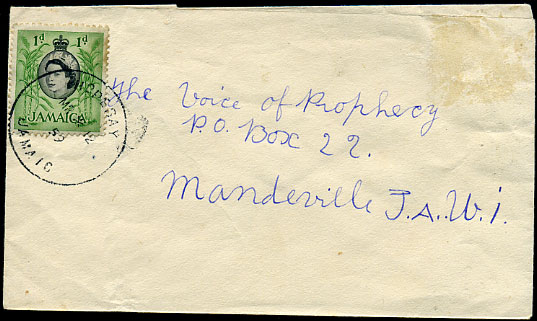 1d 1d
JAMAICA
The Voice of Prophecy
P.O. Box 22.
Mandeville J.A.W.I.
JAMAIC